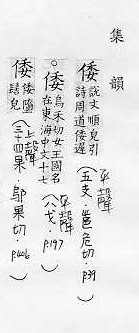 集韻
倭 說文順皃引詩周道倭遲 平聲(五支・邕危切・p39)
○倭 烏禾切女王國名在東海中文十七 平聲(八戈・p197)
倭 倭墮髻皃 上聲(三十四果・鄔果切・p406)